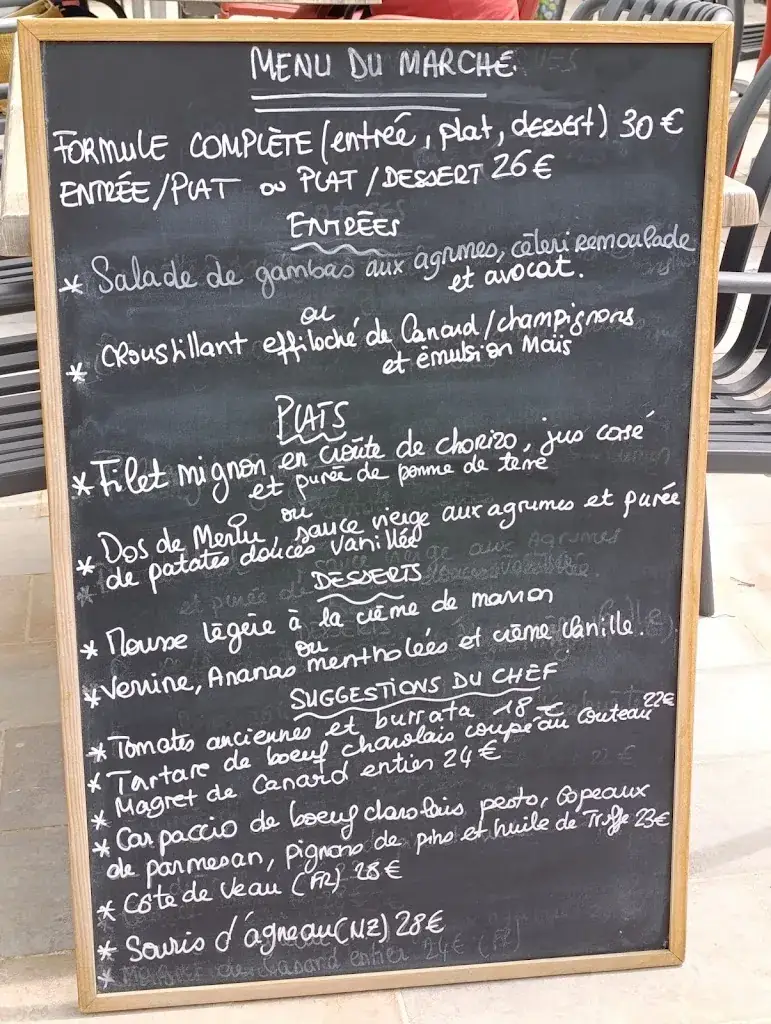 MENU DU MARCHÉ
FORMULE COMPLÈTE (entrée, plat, dessert) 30 €
ENTRÉE/PLAT ou PLAT/DESSERT 26 €
ENTRÉES
* Salade de gambas aux agrumes, céleri Remoulade
et avocat.
ou
* Croustillant effiloché de Canard/champignons
et émulsion Maïs
PLATS
* Filet mignon en croûte de chorizo, jus corsé
et purée de pomme de terre
ou
* Dos de Merlu, sauce vierge aux agrumes et purée
de patates douces vanillée
DESSERTS
* Mousse légère à la crème de marron
ou
* Verrine, Ananas mentholées et crème Vanille.
SUGGESTIONS DU CHEF
* Tomates anciennes et burrata 18 €
* Tartare de boeuf charolais coupé au couteau 22€
* Magret de Canard entier 24 €
* Carpaccio de boeuf charolais pesto, Copeaux
de parmesan, pignons de pins et huile de Truffe 23€
* Côte de Veau (FR) 28 €
* Souris d'agneau (NZ) 28€
* Magret de Canard entier 24€ (FR)